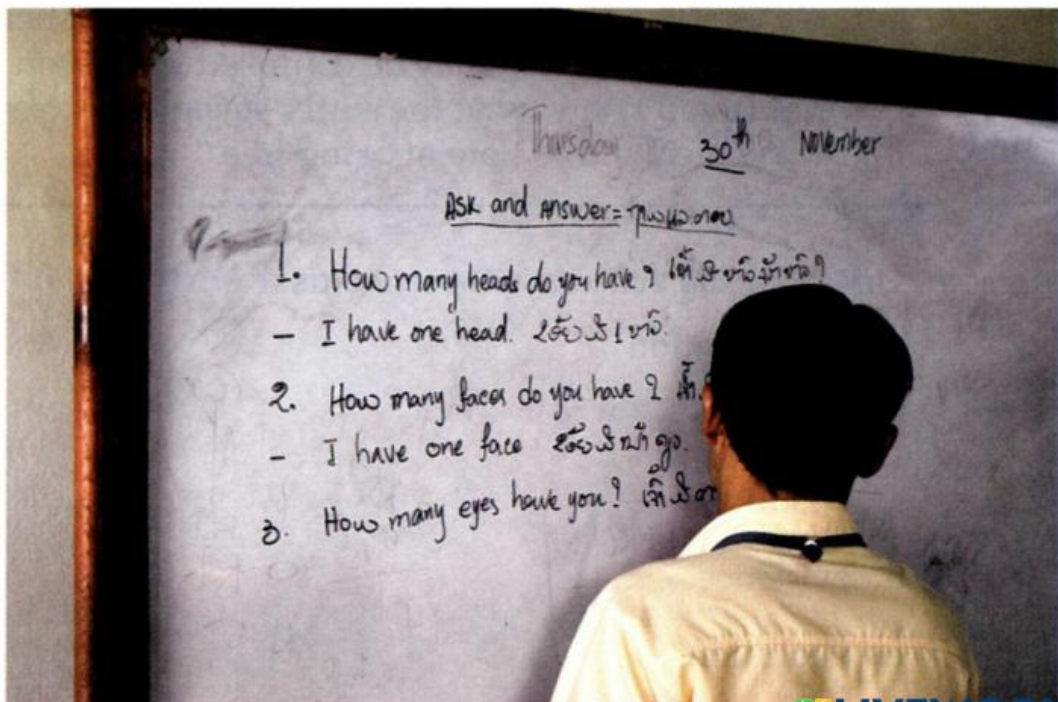 Thursday 30th November
Ask and Answer = ຖາມແລະຕອບ
1. How many heads do you have?
- I have one head. ຂ້ອຍມີ 1 ຫົວ.
2. How many faces do you have? ເຈົ້າ
- I have one face ຂ້ອຍມີໜ້າດຽວ.
3. How many eyes have you? ເຈົ້າມີຕາ